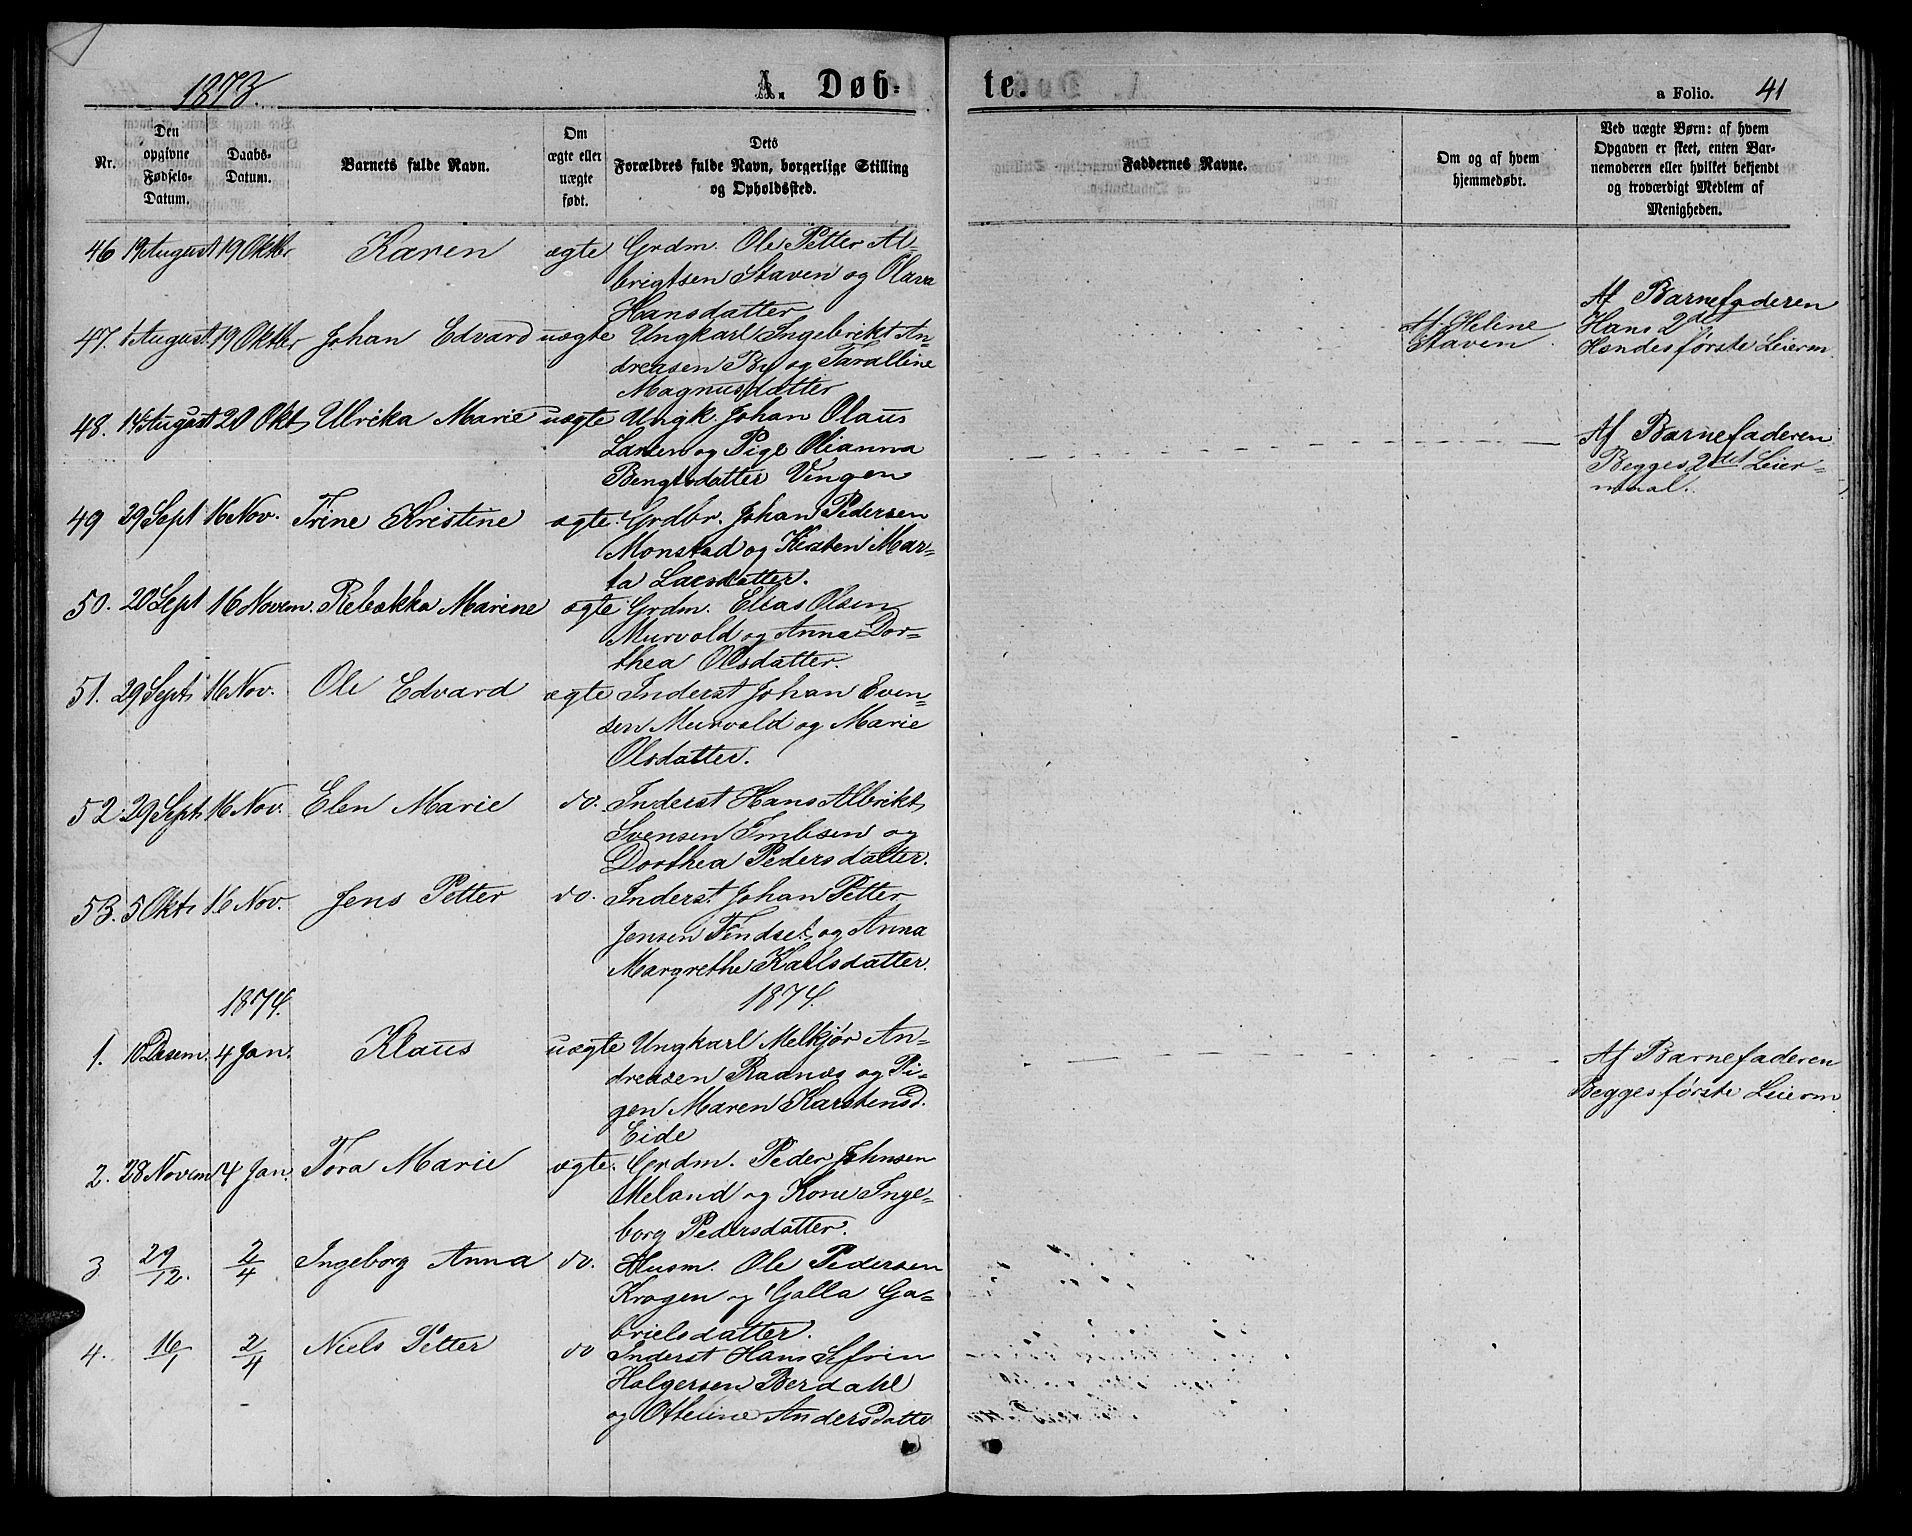 1873.
A. Døbte.
a Folio. 41
Nr.
Den opgivne Fødsels-Datum.
Daabs-Datum.
Barnets fulde Navn.
Om ægte eller uægte født.
Dets Forældres fulde Navn, borgerlige Stilling og Opholdssted.
Faddernes Navne.
Om og af hvem hjemmedøbt.
Ved uægte Børn: af hvem Opgaven er skeet, enten Barnemoderen eller hvilket bekjendt og troværdigt Medlem af Menigheden.
46 19 August 19 Oktbr Karen ægte Grdm. Ole Petter Al-
brigtsen Staven og Olava
Hansdatter
47. 1 August 19 Oktbr Johan Edvard uægte Ungkarl Ingebrikt An-
dreasen By og Taralline
Magnusdatter
Af Helene
Staven
Af Barnefaderen
Hans 2det
Hendes første Leierm
48. 14 August 20 Okt Ulrika Marie uægte Ungk. Johan Olaus
Larsen og Pige Olianna
Bengtsdatter Vingen
Af Barnefaderen
Begges 2det Leier-
maal.
49 29 Sept 16 Nov. Trine Kristine ægte. Grdbr. Johan Pedersen
Monstad og Kirsten Mar-
ta Larsdatter.
50. 20 Sept 16 Novem. Rebekka Marine ægte Grdm. Elias Olsen
Murvold og Anna Dor-
thea Olsdatter.
51. 29 Sept 16 Nov. Ole Edvard ægte Inderst Johan Even-
sen Murvold og Marie
Olsdatter.
52. 29 Sept 16 Nov. Elen Marie do. Inderst Hans Albrikt
Svensen Imbsen og
Dorthea Pedersdatter.
53. 5 Okt 16 Nov. Jens Petter do. Inderst Johan Petter
Jensen Tendset og Anna
Margrethe Karlsdatter.
1874. 1874.
1. 10 Desem. 4 Jan. Klaus uægte Ungkarl Melkjør An-
dreasen Raanæs og Pi-
gen Maren Karstensd.
Eide
Af Barnefaderen
Begges første Leierm
2. 28 Novem 4 Jan. Tora Marie ægte. Grdm. Peder Johnsen
Meland og Kone Inge-
borg Pedersdatter.
3 29/12. 2/4 Ingeborg Anna do. Husm. Ole Pedersen
Kragen og Golla Ga-
brielsdatter.
4. 16/1 2/4 Niels Petter do Inderst Hans Sefrin
Holgersen Berdahl
og Otheline Andersdatte